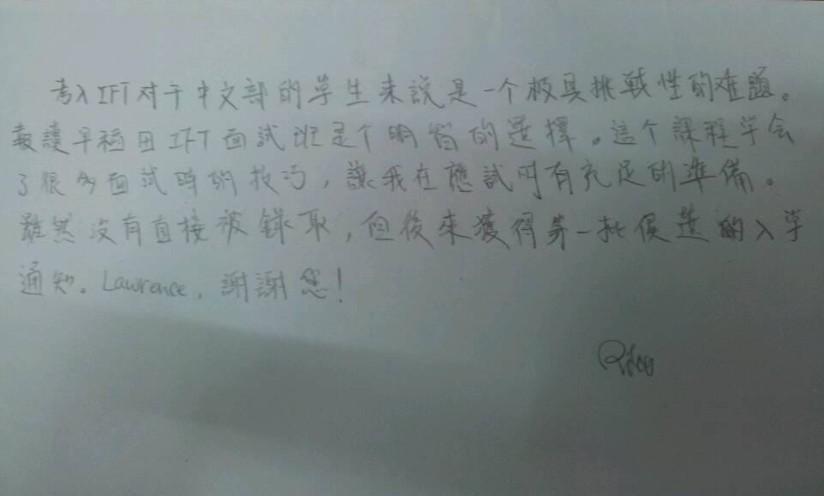 考入IFT对于中文部的学生来説是一个极具挑戦性的难題。
報讀早稲田IFT面試班是个明智的選擇。這个課程学会
了很多面試時的技巧，讓我在應試时有充足的準備。
雖然没有直接被錄取，但後來獲得第一批侯選的入学
通知。Lawrence，謝謝您！